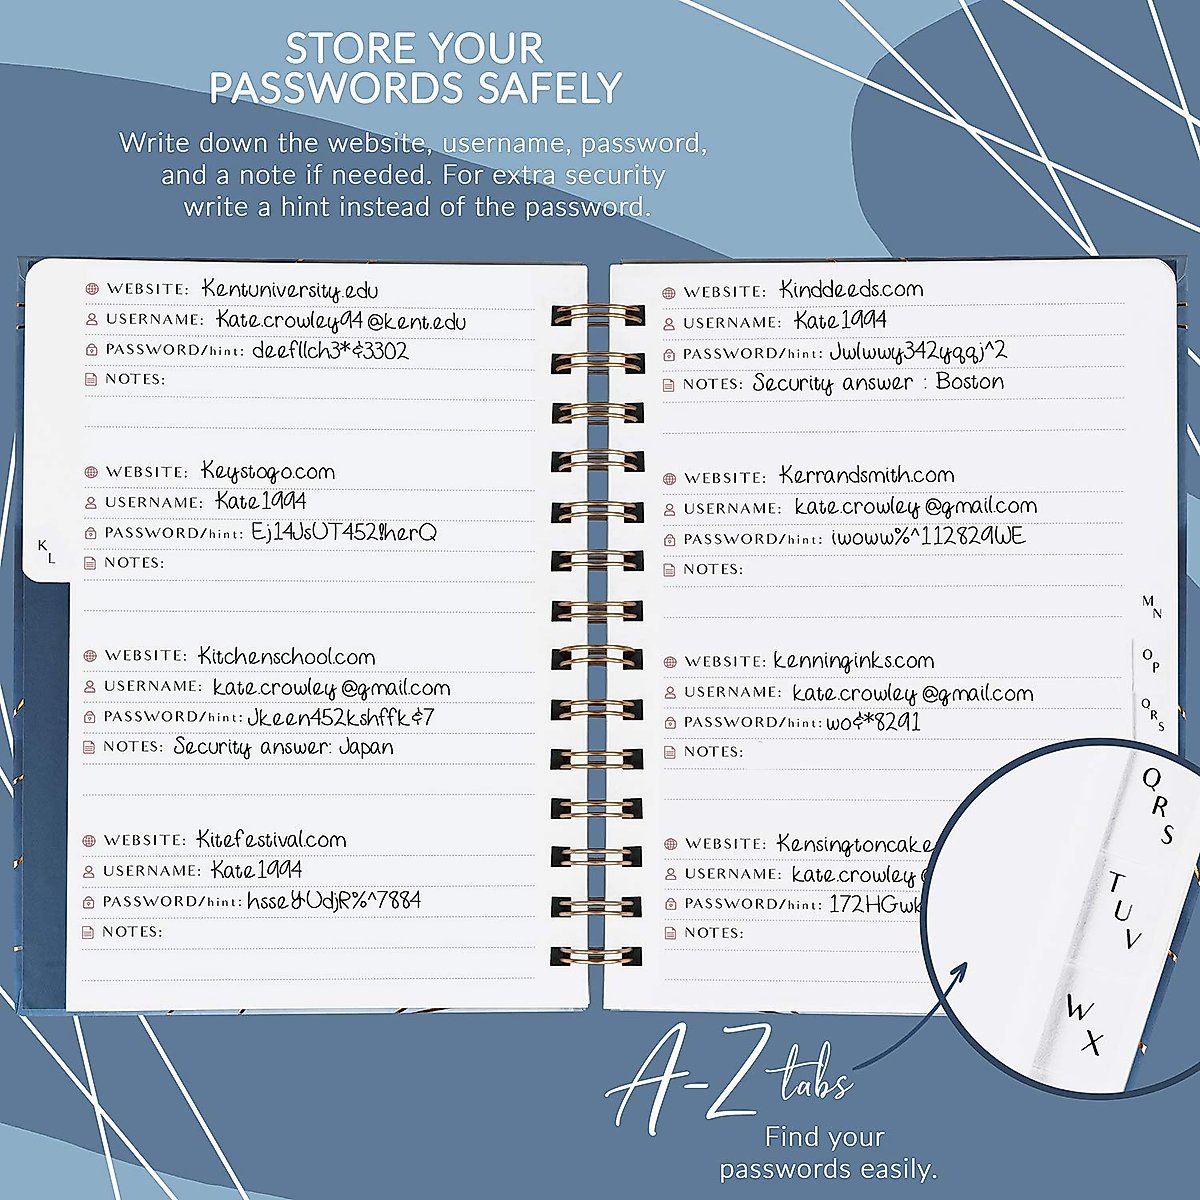 STORE YOUR
PASSWORDS SAFELY
Write down the website, username, password,
and a note if needed. For extra security
write a hint instead of the password.
WEBSITE: Kentuniversity.edu
USERNAME: Kate.crowley94@kent.edu
PASSWORD/hint: deefllch3*&3302
NOTES:
WEBSITE: Keystogo.com
USERNAME: Kate1994
PASSWORD/hint: Ej14JsUT452!herQ
NOTES:
WEBSITE: Kitchenschool.com
USERNAME: kate.crowley@gmail.com
PASSWORD/hint: Jkeen452kshffk&7
NOTES: Security answer: Japan
WEBSITE: Kitefestival.com
USERNAME: Kate1994
PASSWORD/hint: hsseYUdjR%^7884
NOTES:
K
L
WEBSITE: Kinddeeds.com
USERNAME: Kate1994
PASSWORD/hint: Jwlwwy342yqqj^2
NOTES: Security answer : Boston
WEBSITE: Kerrandsmith.com
USERNAME: kate.crowley@gmail.com
PASSWORD/hint: iwoww%^112829WE
NOTES:
WEBSITE: kenninginks.com
USERNAME: kate.crowley@gmail.com
PASSWORD/hint: wo&*8291
NOTES:
WEBSITE: Kensingtoncake
USERNAME: kate.crowley
PASSWORD/hint: 172HGwk
NOTES:
M
N
O
P
Q
R
S
Q
R
S
T
U
V
W
X
A-Z tabs
Find your
passwords easily.